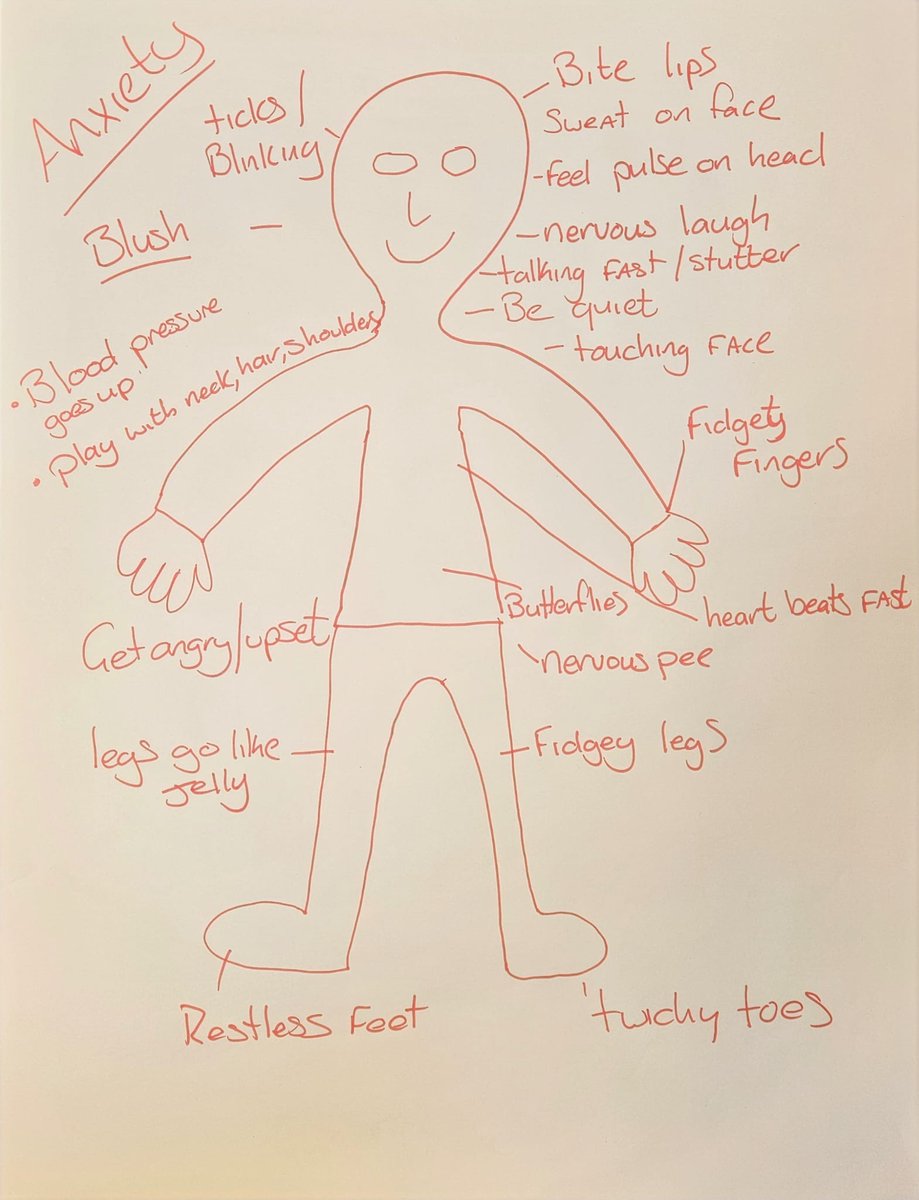 Anxiety
ticks/
Blinking
Blush
• Blood pressure
goes up
• play with neck, hair, shoulders
Bite lips
Sweat on face
- feel pulse on head
- nervous laugh
- talking FAst / stutter
- Be quiet
- touching FAce
Fidgety
Fingers
heart beats FASt
Butterflies
nervous pee
Get angry/upset
legs go like
Jelly
Fidgey legs
Restless Feet
twichy toes